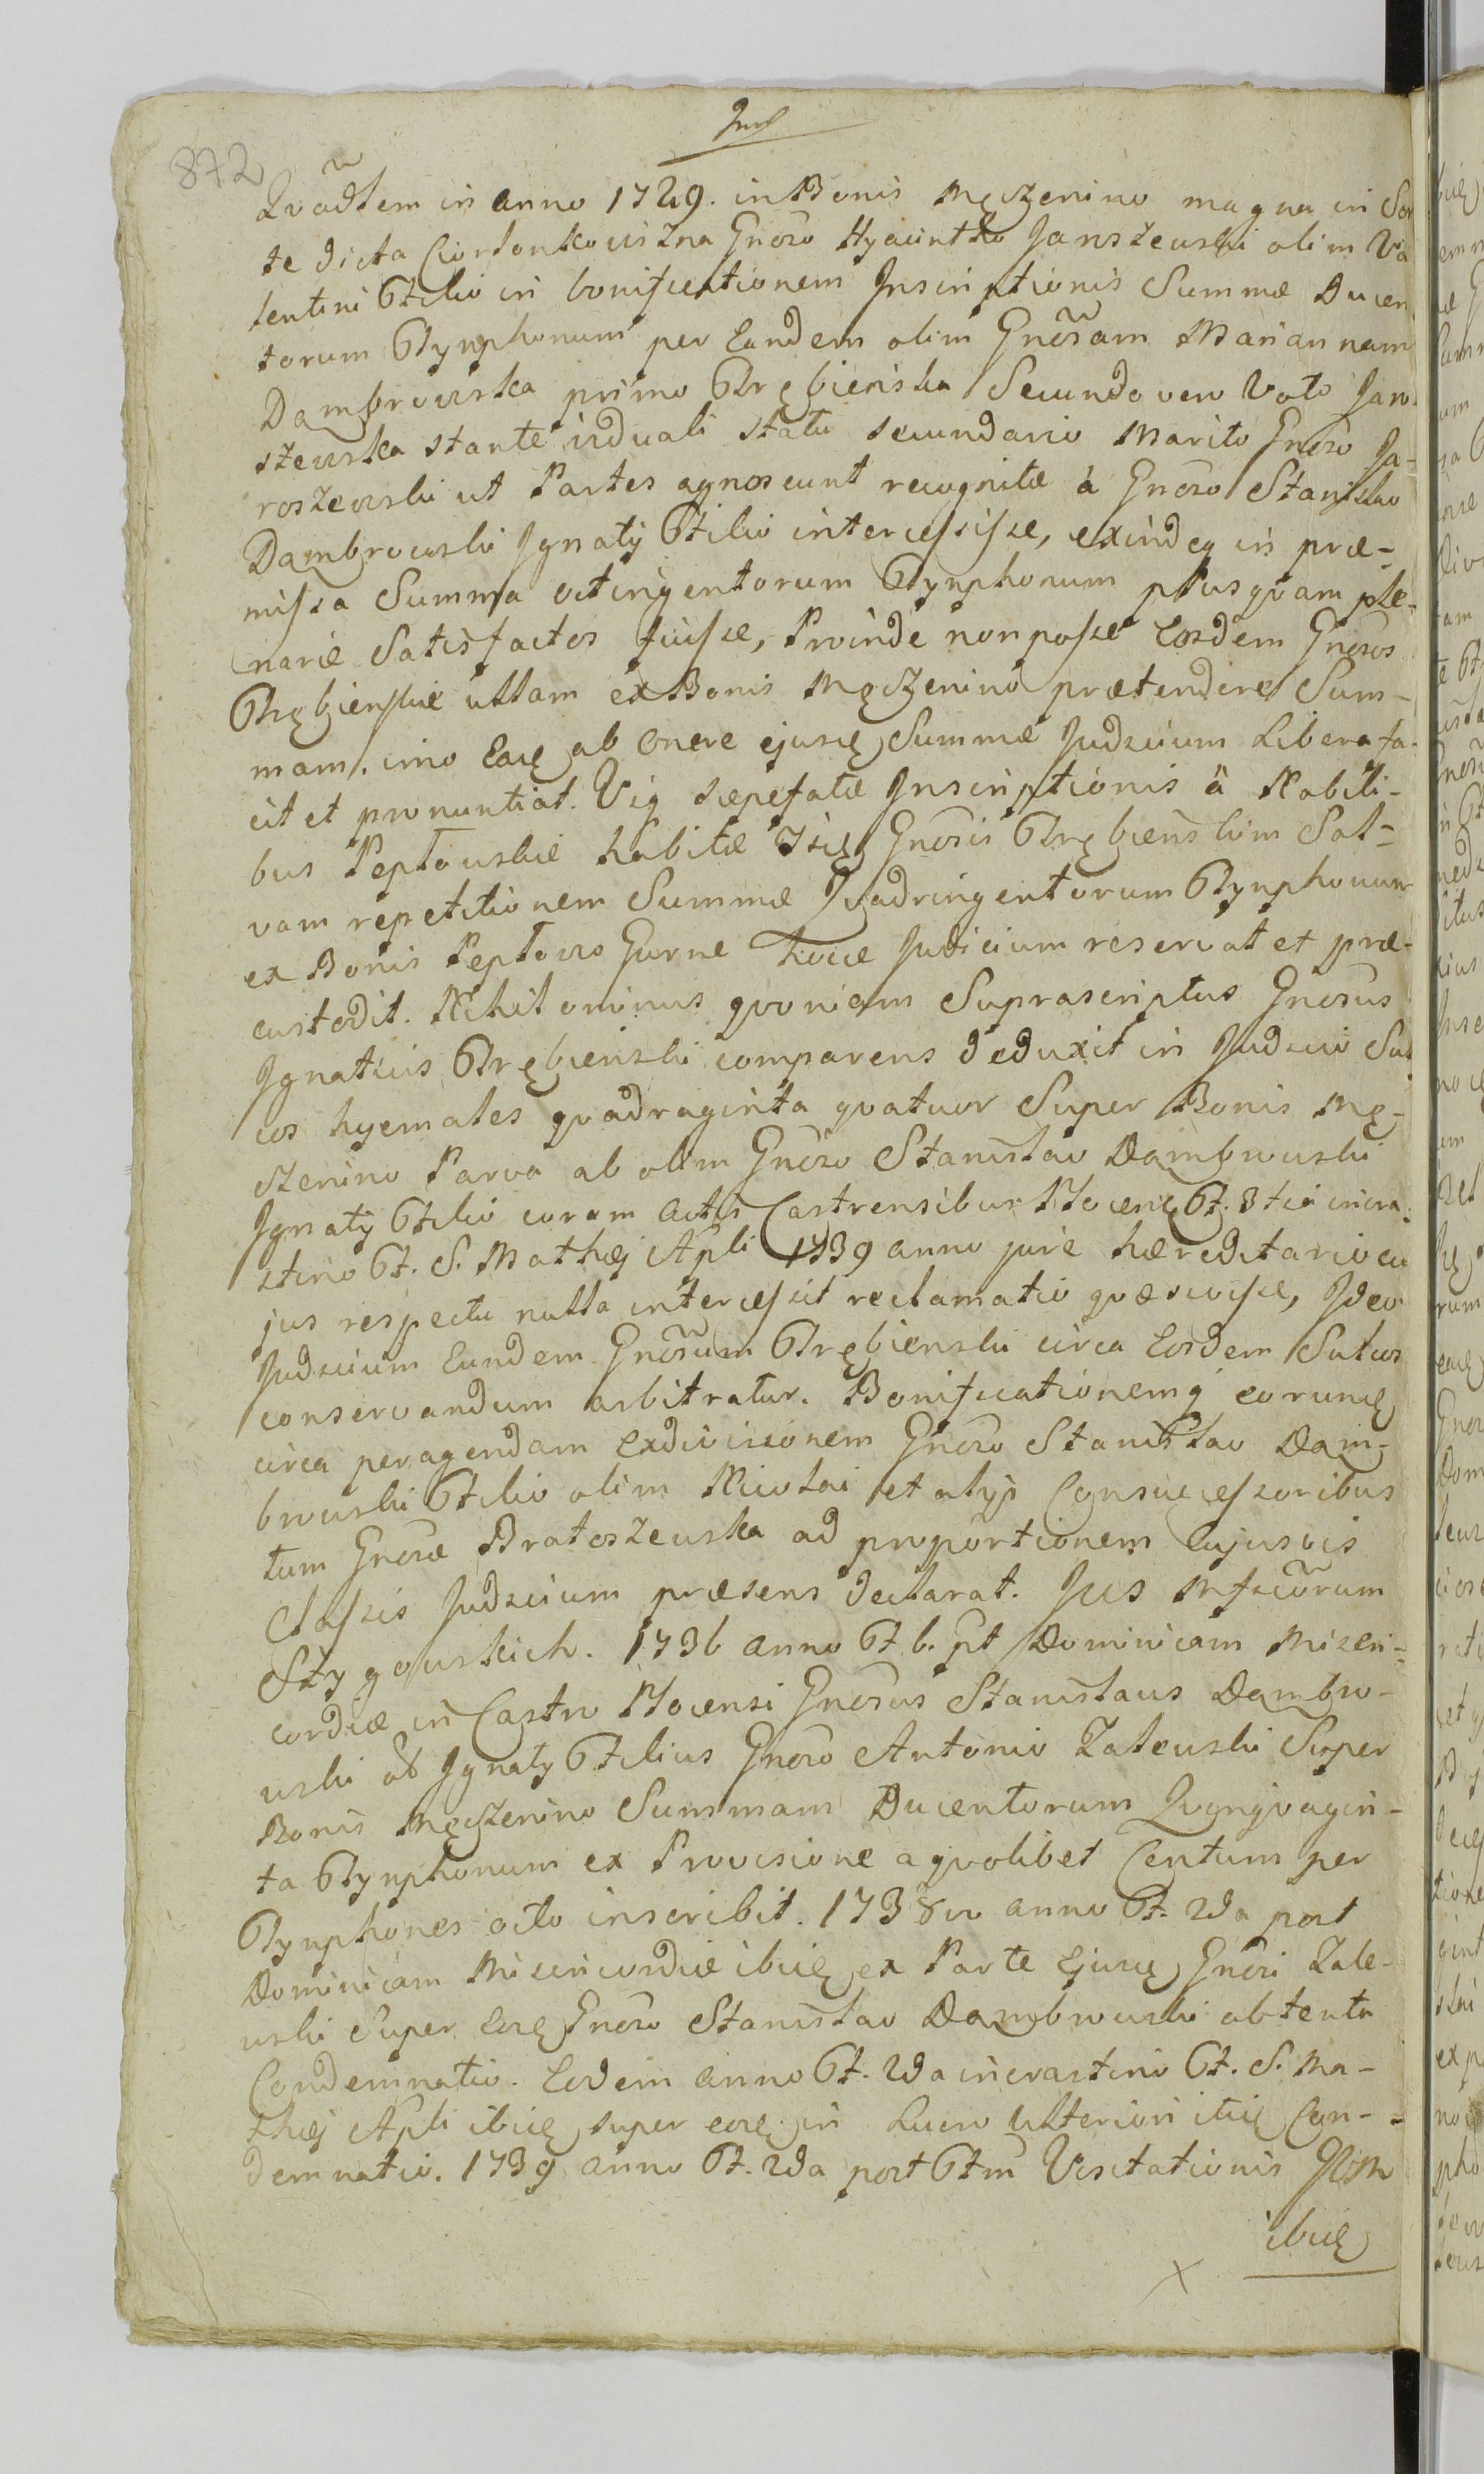 872
Qvãdtem in anno 1729. in Bonis Męczenino magna in Sor
te dicta Ciortonkowizna Gnõso Hyacintho Jaroszewski olim Va
lentini Filio in bonificationem Inscriptionis Summæ Ducen
torum Tynphonum per Eandem olim Gnõsam Mariannam
Dambrowska primo Trębienska Secundo vero Voto Jaro
szewska stante viduali statu secundario Marito Gnõso Ja-
roszewski ut Partes agnoscunt recognitæ à Gnõso Stanislao
Dambrowski Ignatij Filio intercessisse, exindeq in præ-
missa Summa octingentorum Tynphonum plusqvam ple-
narie Satisfactos fuisse, Proinde non posse Eosdem Gnõsos
Trębienskie ullam ex Bonis Męczenino prætendere Sum-
mam, imo Eaę ab onere ejusę Summæ Judicium Libera fa-
cit et pronuntiat. Vig sæpefatæ Inscriptionis à Nobili-
bus Peptowskie habitæ Isię Gnõsis Trębienskim Sal-
vam repetitionem Summæ Qvadringentorum Tynphonum
ex Bonis Peptowo Gurne hocce Judicium reservat et præ-
custodit. Nihilominus qvoniam Suprascriptus Gnõsus
Ignatius Trębienski comparens deduxit in Judicio Sul
cos hyemales qvadraginta qvatuor Super Bonis Mę-
czenino Parva ab olim Gnõso Stanislao Dambrowski
Ignatij Filio coram Actis Castrensibus Plocenę F. 3tia incra-
stino F. S. Mathæj Apli 1739 anno jure hæreditario cu
jus respectu nulla intercessit reclamatio qvæsivisse, Ideo
Judicium Eundem Gnõsum Trębienski circa Eosdem Sulcos
conservandum arbitratur. Bonificationemq eorumę
circa peragendam Exdivisionem Gnõso Stanislao Dam-
browski Filio olim Nicolai et alijs Consuccessoribus
tum Gnõsæ Bratoszewska ad proportionem Cujusvis
Classis Judicium præsens declarat. Jus Mfcõrum
Szygowskich. 1736 anno F. 6. pt Dominicam Miseri-
cordiæ in Castro Plocensi Gnõsus Stanislaus Dambro-
wski Ignaty Filius Gnõso Antonio Zalewski Super
Bonis Męczenino Summam Ducentorum Qvinqvagin-
ta Tynphonum ex Provisione a qvolibet Centum per
Tynphones octo inscribit. 1738vo anno F. 2da post
Dominicam Misericordiæ ibię ex Parte Ejusę Gnõsi Zale-
wski Super Eoę Gnõso Stanislao Dambrowski obtenta
Condemnatio. Eodem anno F. 2da incrastino F. S. Ma-
thæj Apli ibię super eoę in Lucro Ulteriori itię Con-
demnatio. 1739 anno F. 2da post Ftm Visitationis BVM
ibię